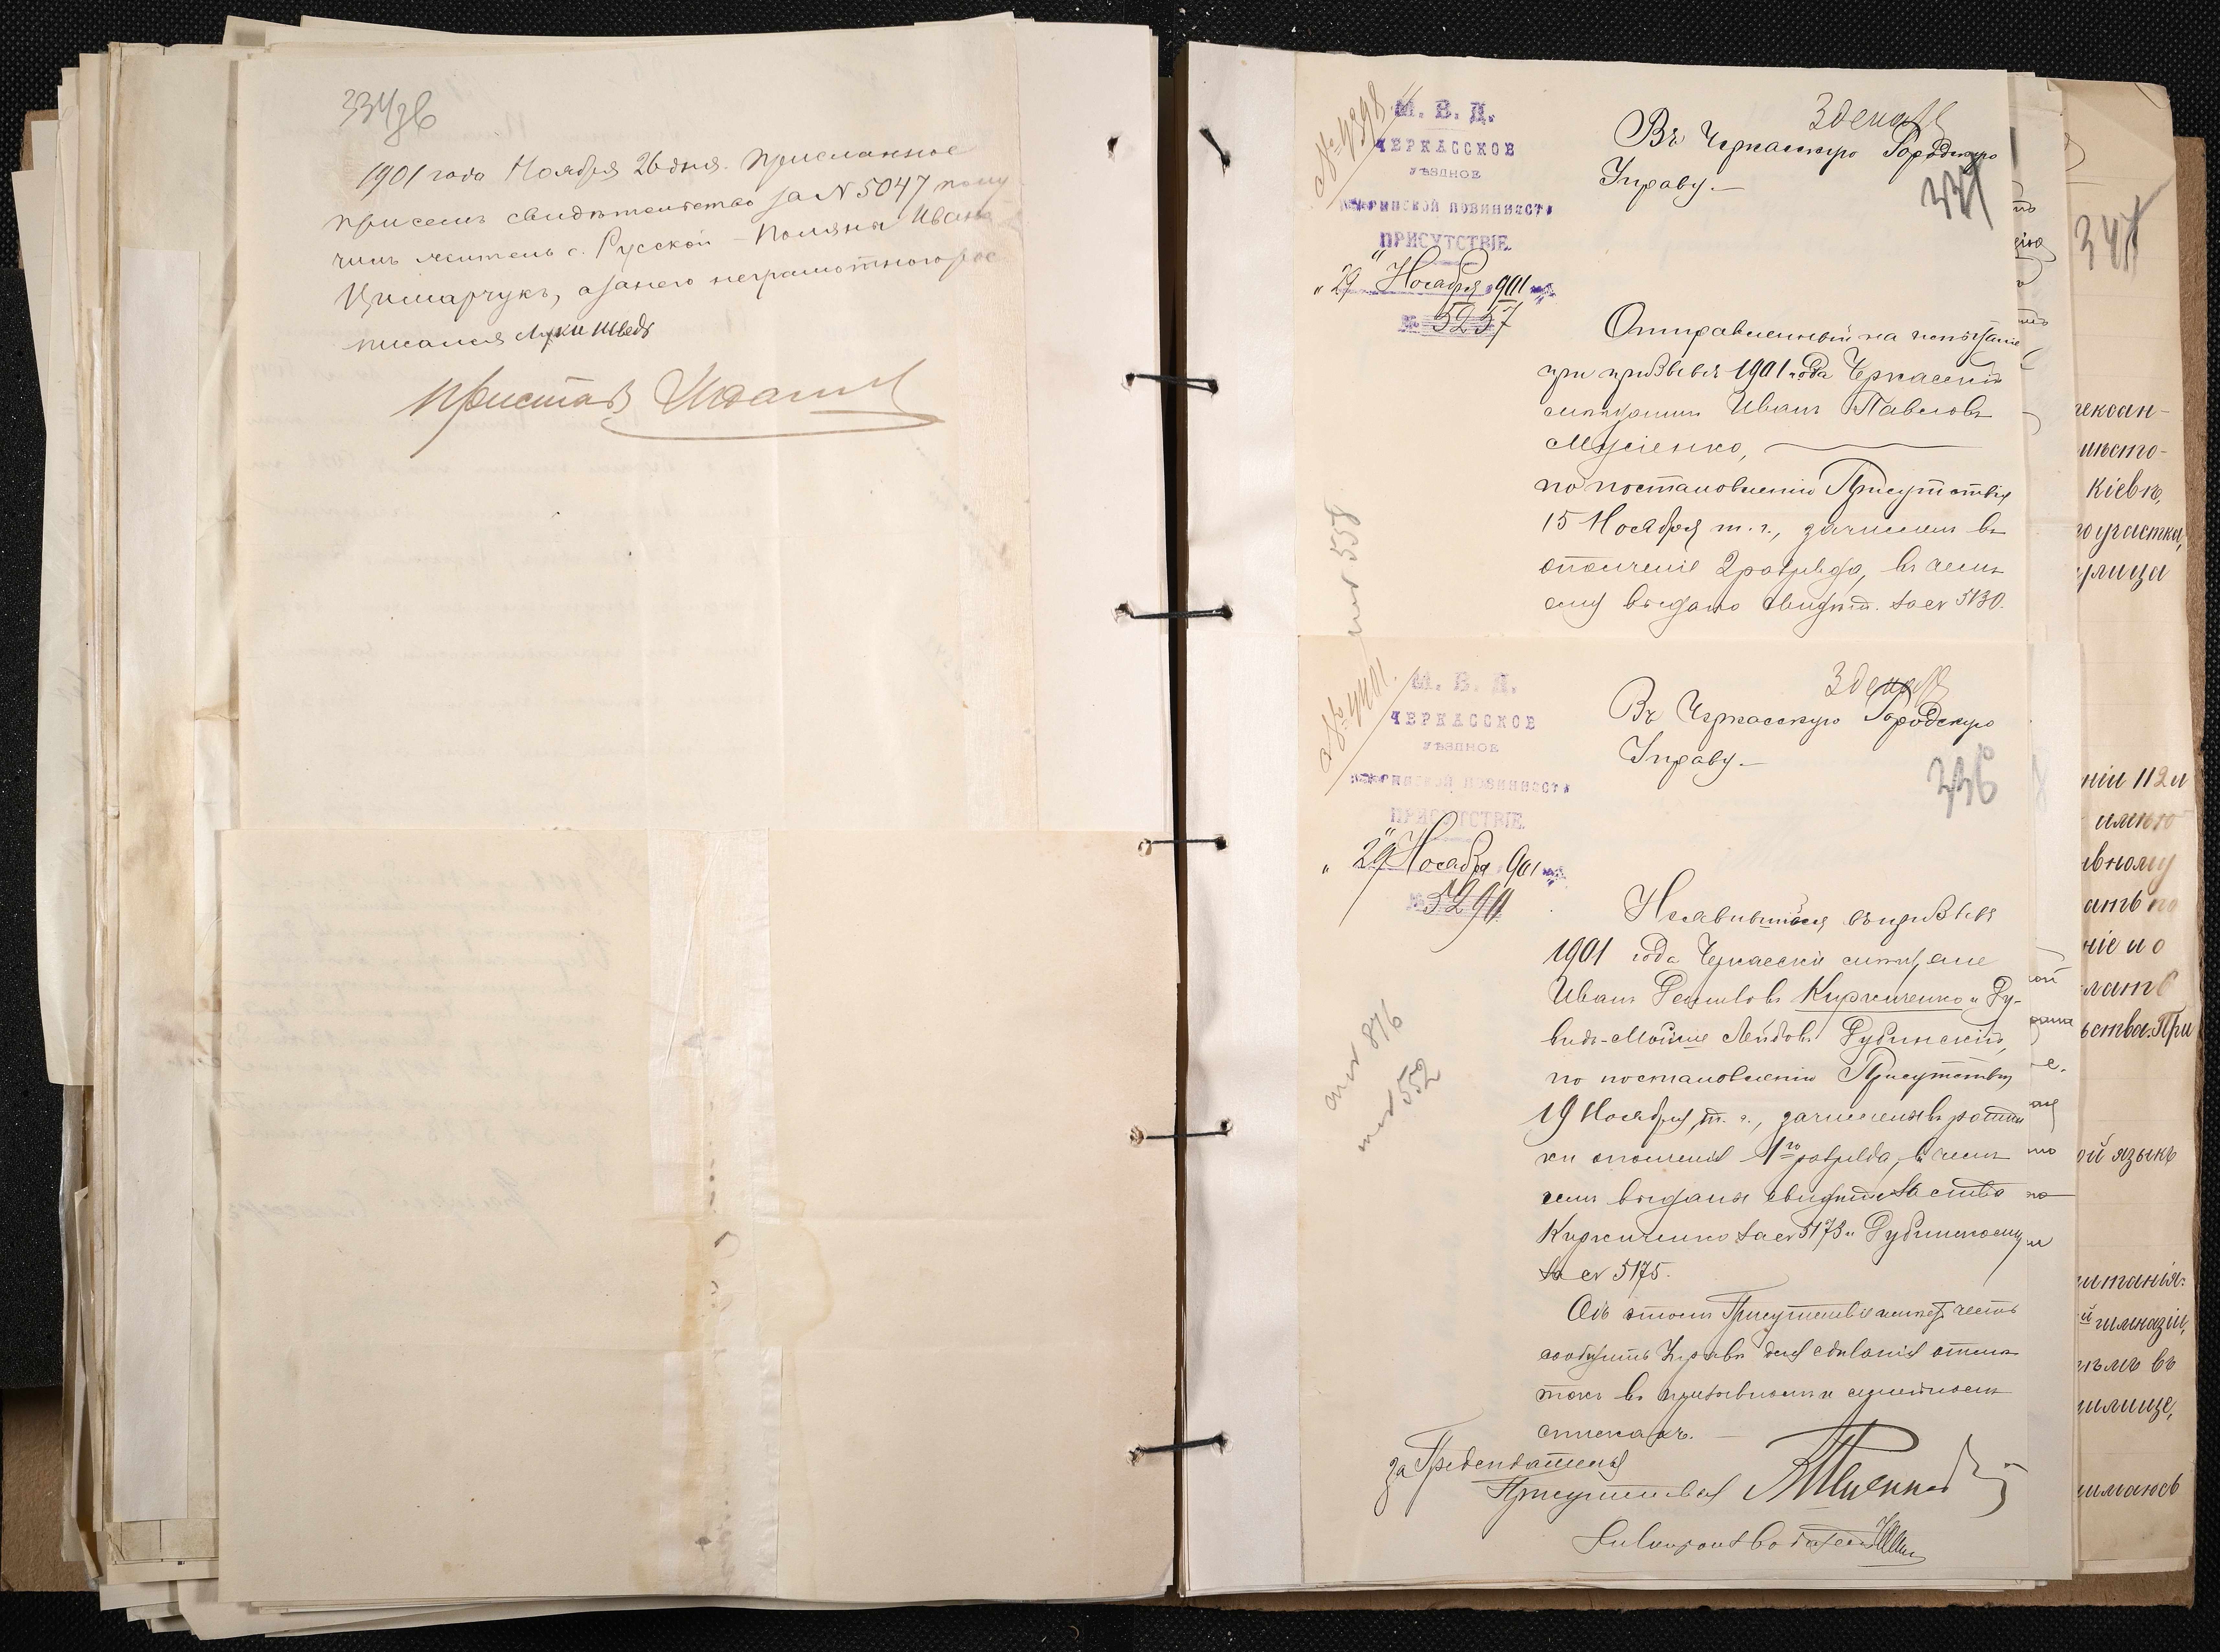 334зв
1901 года Ноября 26 дня. присланное
при семъ свидѣтельство за N 5047 полу
чилъ житель с. Русской-Поляны Иванъ
Цимарчукъ, а за него неграмотного рос
писался Лука Шведъ
Приставъ
№ 4398
М. В. Д.
ЧЕРКАССКОЕ
УѢЗДНОЕ
ВОИНСКОЙ ПОВИННОСТИ
ПРИСУТСТВІЕ
„29" Ноября 1901
№ 5257
3 декабр
Въ Черкасскую Городскую
Управу.—
Отправленный на испытаніе
при призывѣ 1901 года Черкасскій
мѣщанинъ Иванъ Павловъ
Мусіенко,
по постановленію Присутствія
15 Ноября т. г., зачисленъ въ
ополченіе 2 разряда, въ чемъ
ему выдано свидѣт. за № 5130.
558
№ 4401.
М. В. Д.
ЧЕРКАССКОЕ
УѢЗДНОЕ
ВОИНСКОЙ ПОВИННОСТИ
ПРИСУТСТВІЕ
„29" Ноября 1901
№ 5290
3 декабр
Въ Черкасскую Городскую
Управу.—
336
Неявившіеся въ призывѣ
1901 года Черкасскіе мѣщане
Иванъ Кириченко и Ру-
видъ-Мойше Лейбовъ Рубинскій,
по постановленію Присутствія
19 Ноября т. г., зачислены въ ратни
ки ополченія 1го разряда, въ чемъ
имъ выданы свидѣтельства
Кириченко за № 5173 и Рубинскому
за № 5175.
Объ этомъ Присутствіе имѣетъ честь
сообщить Управѣ для сдѣланія отмѣ
токъ въ призывномъ и семейномъ
спискахъ.—
876
552
за Предсѣдателя
Присутствія
Дѣлопроизводитель
347
лексан-
мѣсто-
Кіевѣ,
го участка,
улица
ніи 112 и
имѣю
ивному
ніе и о
ьства. При
ой языкъ
питанія:
й гимназіи,
илище,